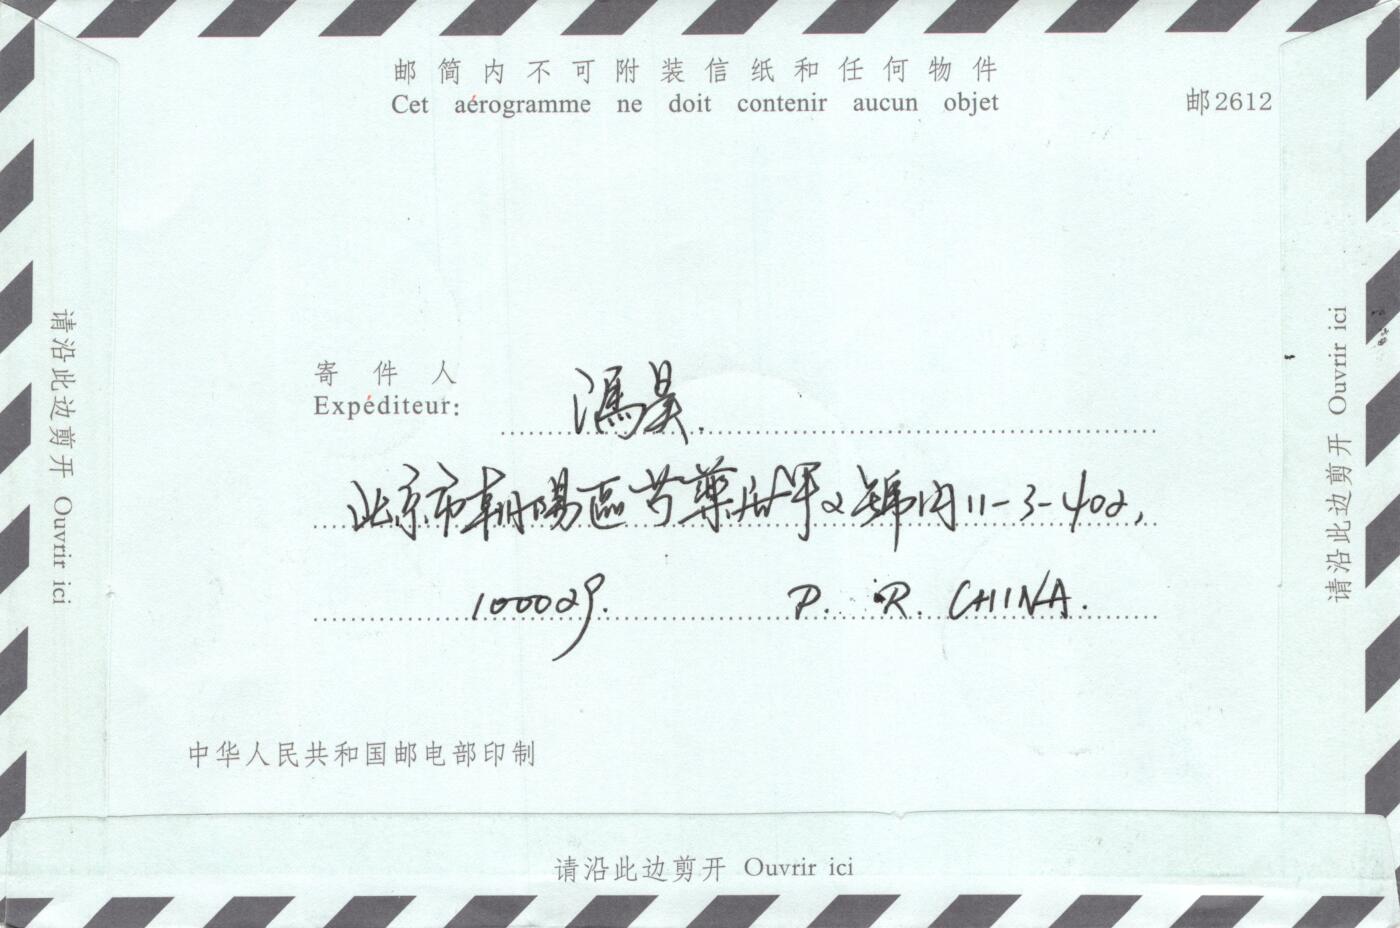 邮简内不可附装信纸和任何物件
Cet aérogramme ne doit contenir aucun objet
邮2612
寄件人
Expéditeur:
馮昊.
北京市朝陽區芍藥居甲2號內11-3-402,
100029. P. R. CHINA.
中华人民共和国邮电部印制
请沿此边剪开 Ouvrir ici
请沿此边剪开 Ouvrir ici
请沿此边剪开 Ouvrir ici